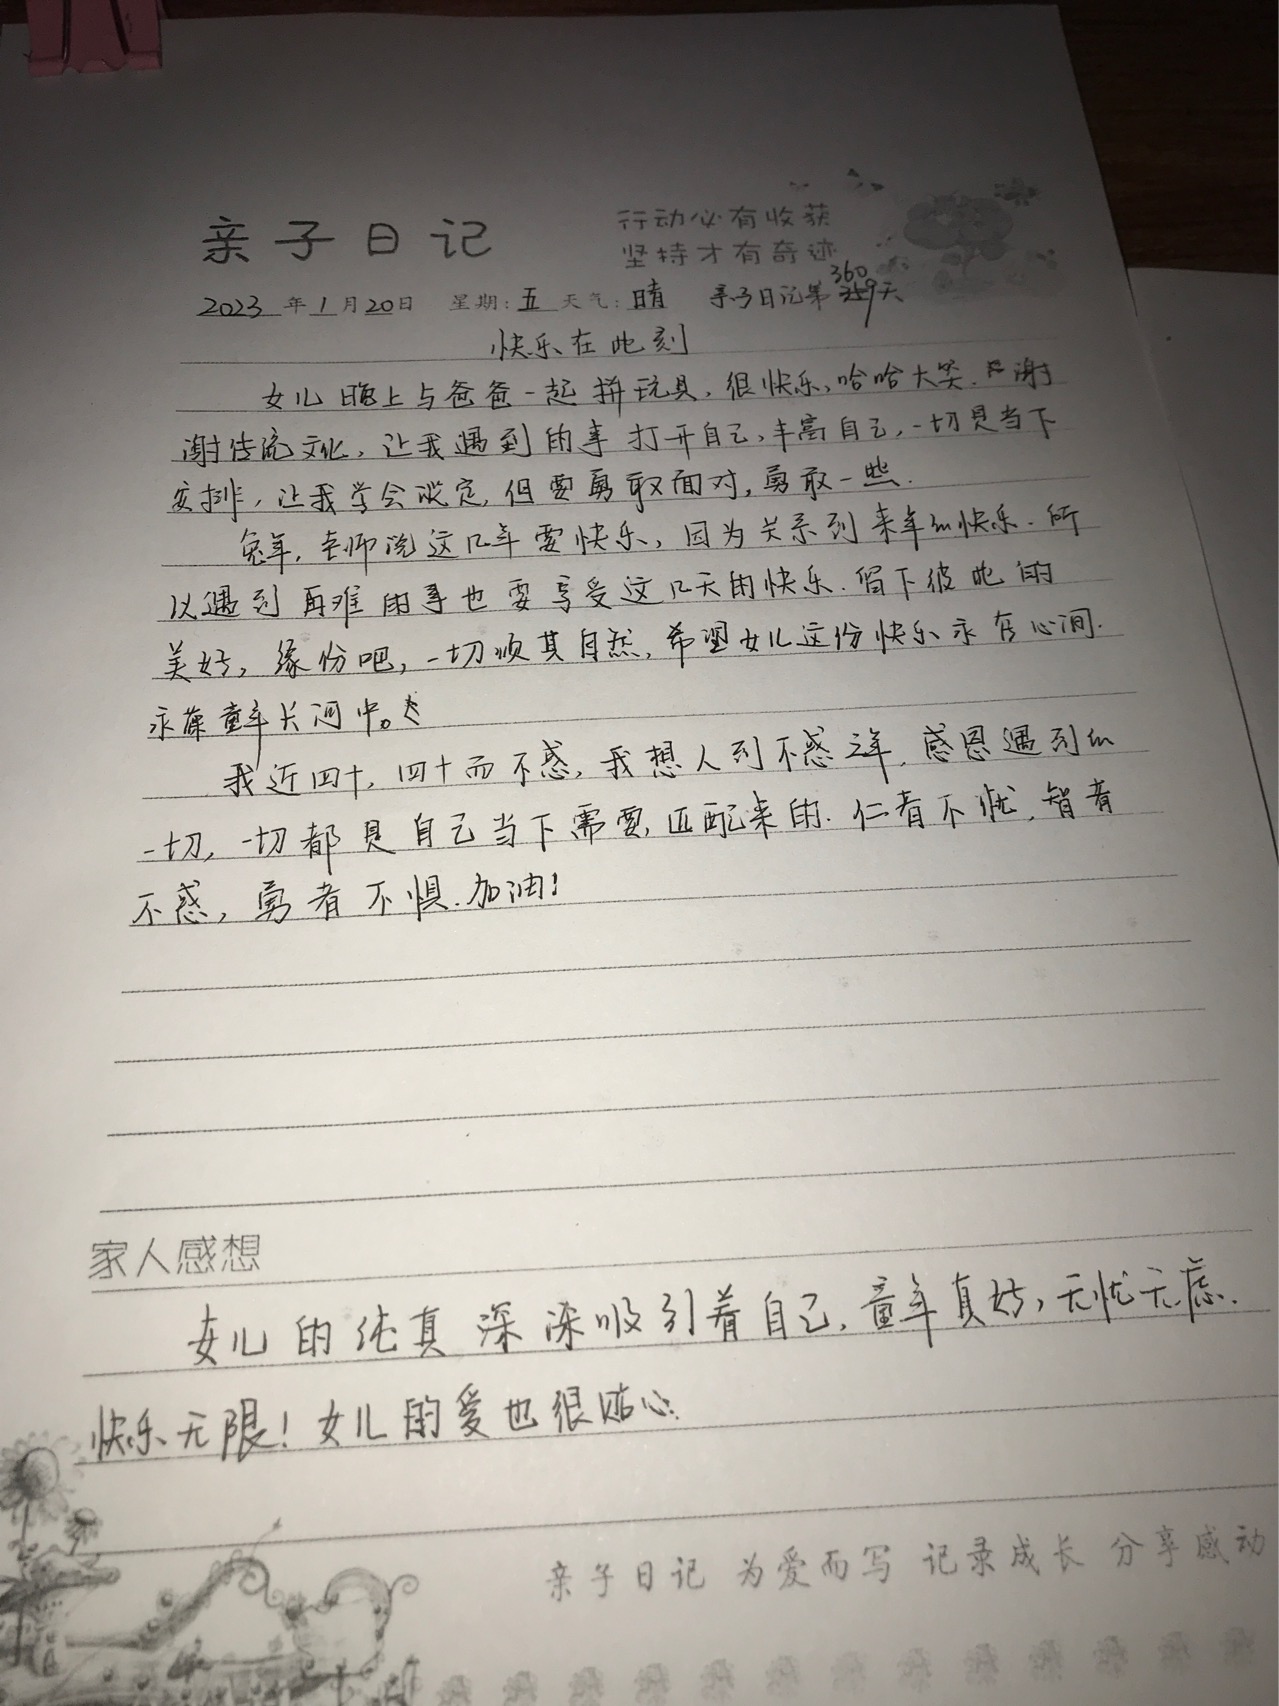 亲子日记
行动必有收获
坚持才有奇迹
2023年1月20日 星期:五 天气:晴 亲子日记第360天
快乐在此刻
女儿晚上与爸爸一起拼玩具,很快乐,哈哈大笑.谢
谢传统文化,让我遇到的事打开自己,丰富自己,一切是当下
安排,让我学会淡定,但要勇敢面对,勇敢一些.
兔年,老师说这几年要快乐,因为关系到来年的快乐.所
以遇到再难的事也要享受这几天的快乐.留下彼此的
美好,缘份吧,一切顺其自然,希望女儿这份快乐永存心间.
永葆童年长河中。
我近四十,四十而不惑,我想人到不惑之年,感恩遇到的
一切,一切都是自己当下需要,匹配来的.仁者不忧,智者
不惑,勇者不惧.加油!
家人感想
女儿的纯真深深吸引着自己,童年真好,无忧无虑.
快乐无限!女儿的爱也很贴心.
亲子日记 为爱而写 记录成长 分享感动